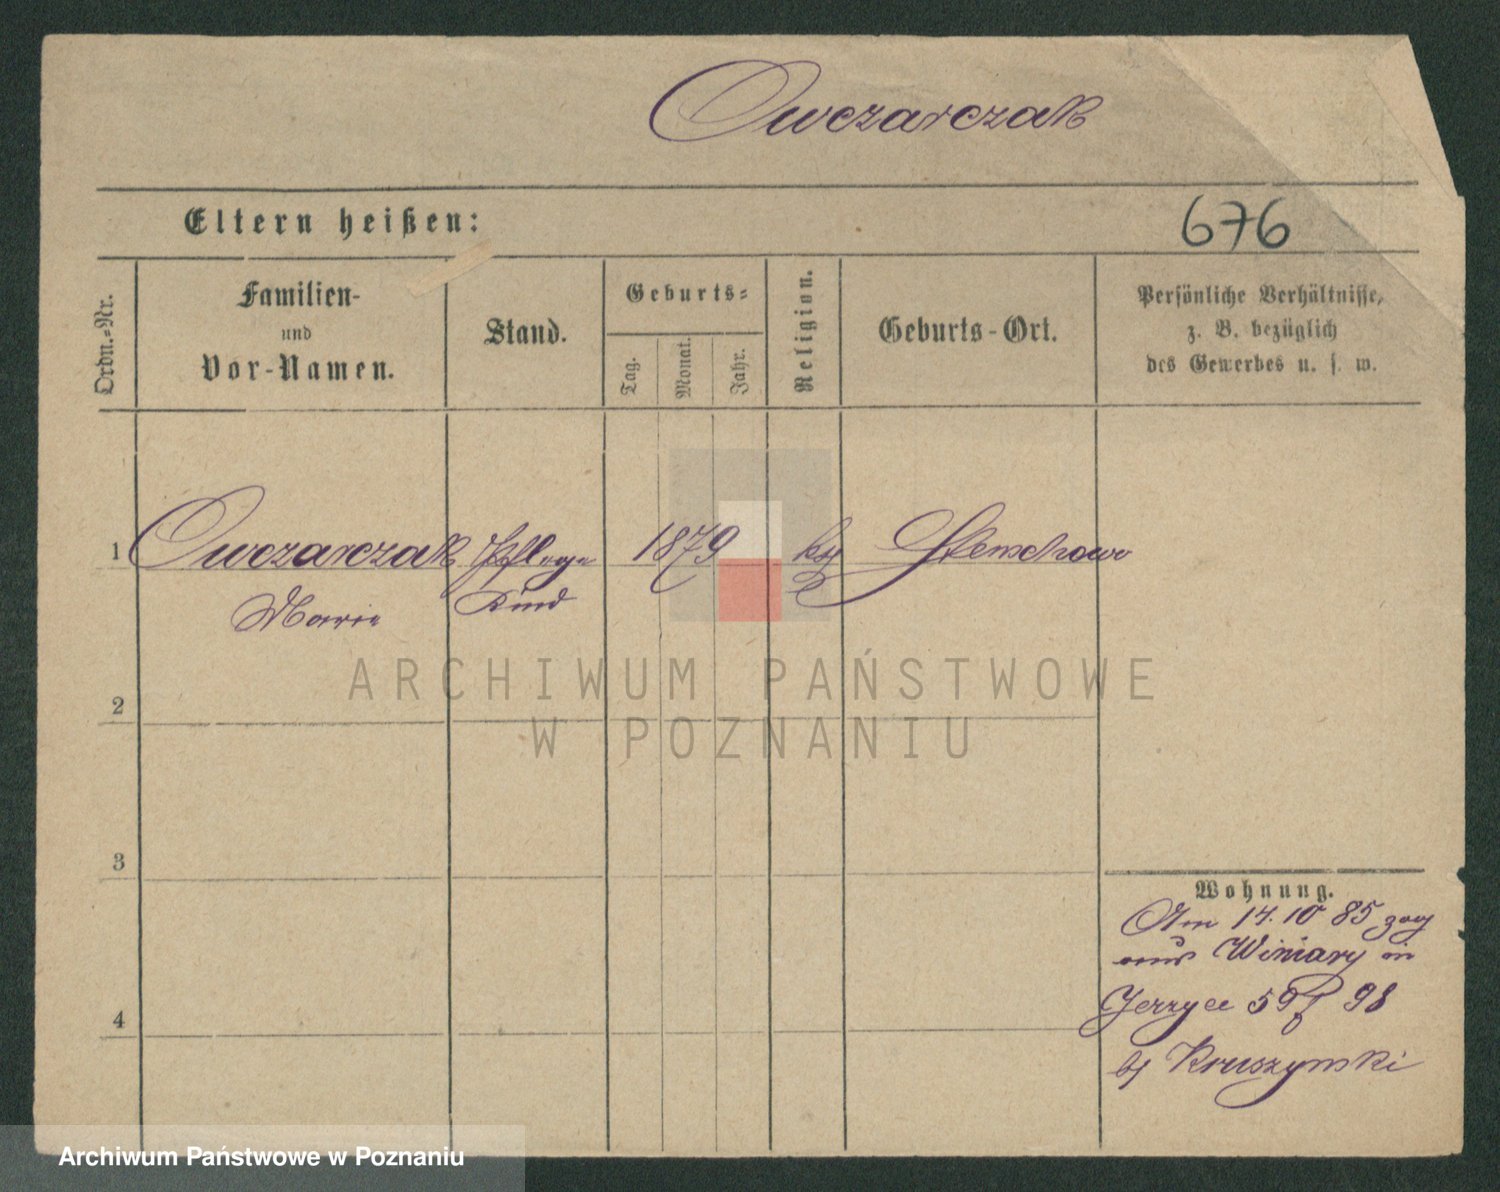 Owczarczak
Eltern heißen:
676
Ordn.-Nr.
Familien-
und
Vor-Namen.
Stand.
Geburts-
Tag.
Monat.
Jahr.
Religion.
Geburts-Ort.
Persönliche Verhältnisse,
z. B. bezüglich
des Gewerbes u. s. w.
1 Owczarczak Pflege 1879
Marie Kind
2
3
4
Wohnung.
Am 14.10 85 zog
aus Winiary in
Jerzyce 59 98
Kruszynski
ARCHIWUM PAŃSTWOWE
W POZNANIU
Archiwum Państwowe w Poznaniu